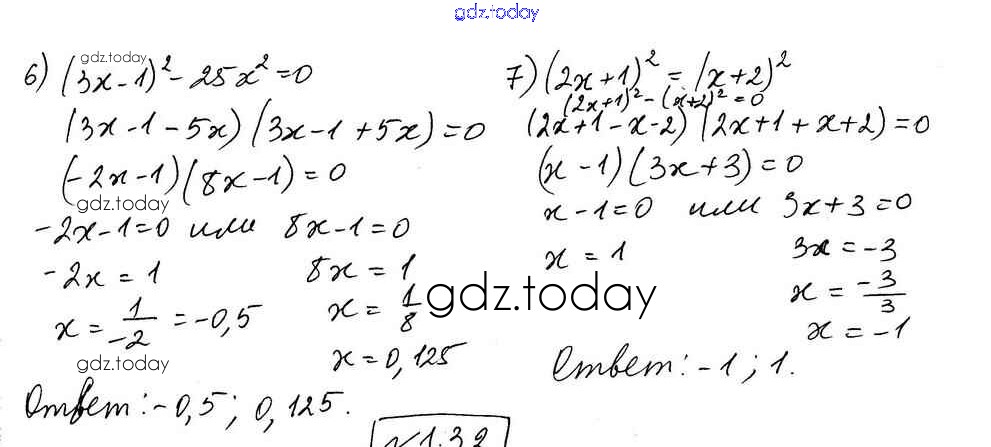 gdz.today
6) (3x-1)² - 25x² = 0
gdz.today
(3x-1-5x)(3x-1+5x)=0
(-2x-1)(8x-1)=0
gdz.today
-2x-1=0 или 8x-1=0
-2x = 1
8x = 1
x = 1/-2 = -0,5
x = 1/8
x = 0,125
gdz.today
Ответ: -0,5; 0,125.
7) (2x+1)² = (x+2)²
(2x+1)² - (x+2)² = 0
(2x+1-x-2)(2x+1+x+2)=0
(x-1)(3x+3)=0
x-1=0 или 3x+3=0
x = 1
3x = -3
x = -3/3
x = -1
gdz.today
Ответ: -1; 1.
№1.32